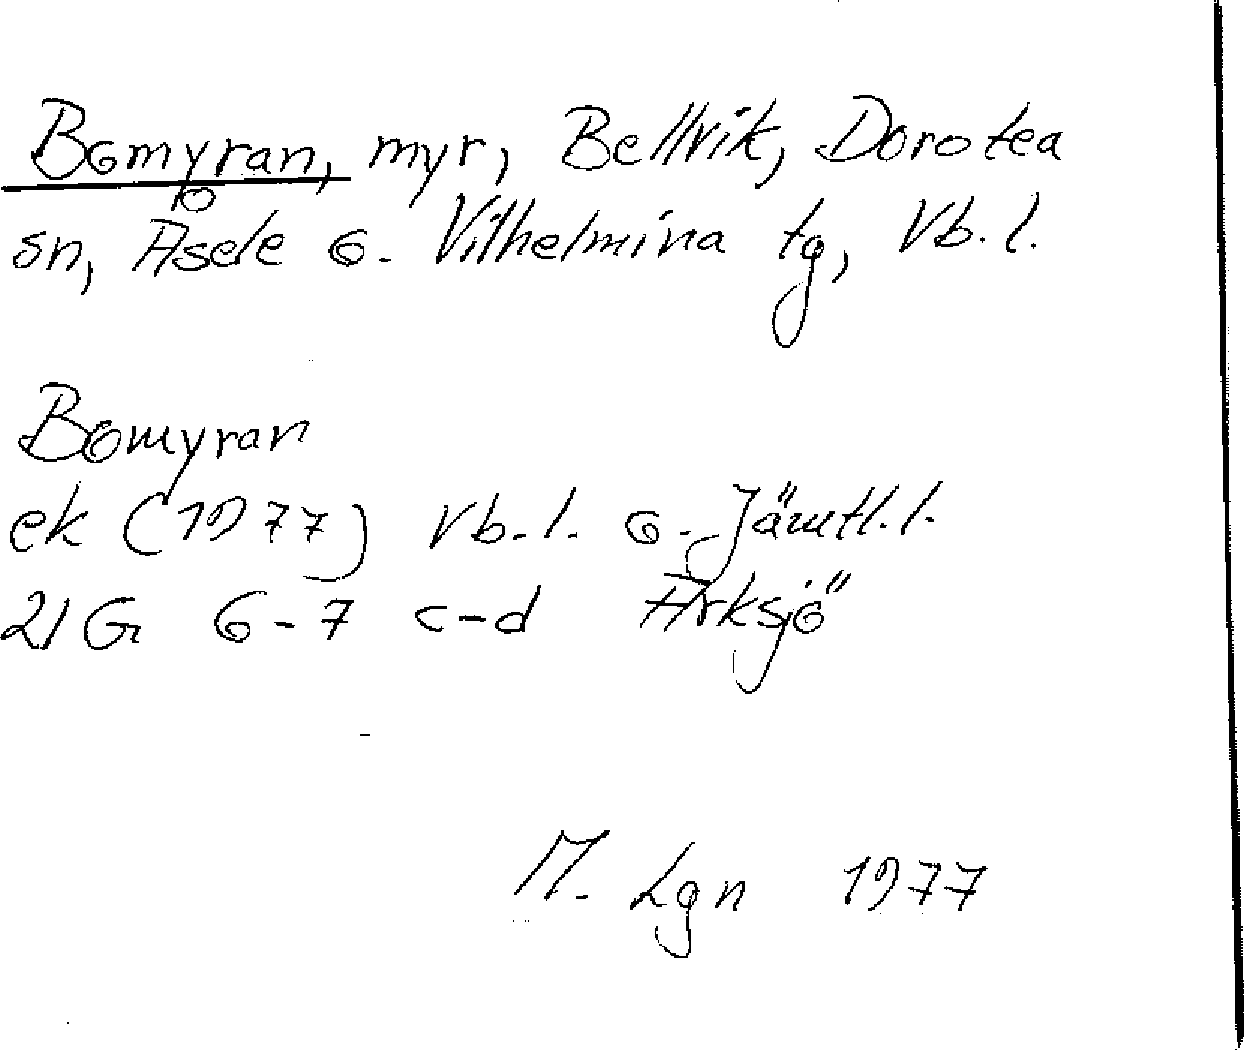 Bomyran, myr, Bellvik, Dorotea
sn, Åsele o. Vilhelmina tg, Vb. l.
Bomyran
ek (1977) Vb. l. o. Jämtl. l.
21 G 6-7 c-d Arksjö
M. Lgn 1977